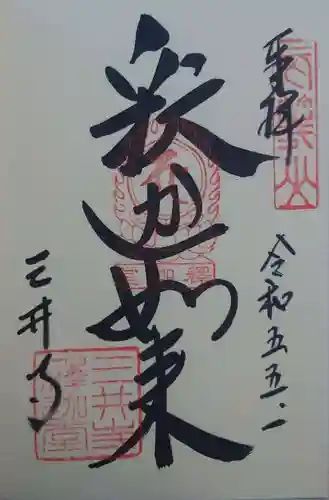 奉拝
令和五五二
釈迦如来
三井寺
三井寺
釈迦堂